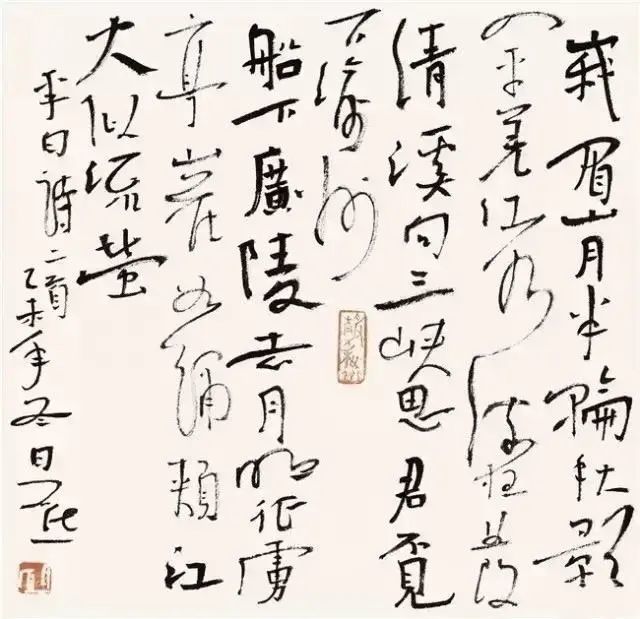 峨眉山月半輪秋影
入平羌江水流夜發
清溪向三峽思君不見
下渝州
船下廣陵去月明征虜
亭山花如繡頰江
火似流螢
李白詩二首乙未年冬日